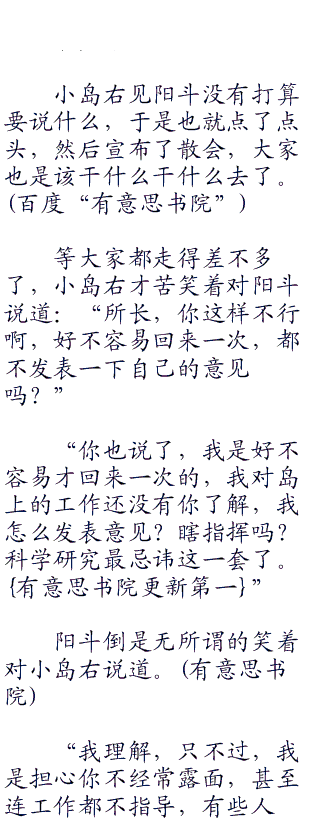 小岛右见阳斗没有打算
要说什么，于是也就点了点
头，然后宣布了散会，大家
也是该干什么干什么去了。
(百度“有意思书院”)
等大家都走得差不多
了，小岛右才苦笑着对阳斗
说道：“所长，你这样不行
啊，好不容易回来一次，都
不发表一下自己的意见
吗？”
“你也说了，我是好不
容易才回来一次的，我对岛
上的工作还没有你了解，我
怎么发表意见？瞎指挥吗？
科学研究最忌讳这一套了。
{有意思书院更新第一}”
阳斗倒是无所谓的笑着
对小岛右说道。(有意思书
院)
“我理解，只不过，我
是担心你不经常露面，甚至
连工作都不指导，有些人